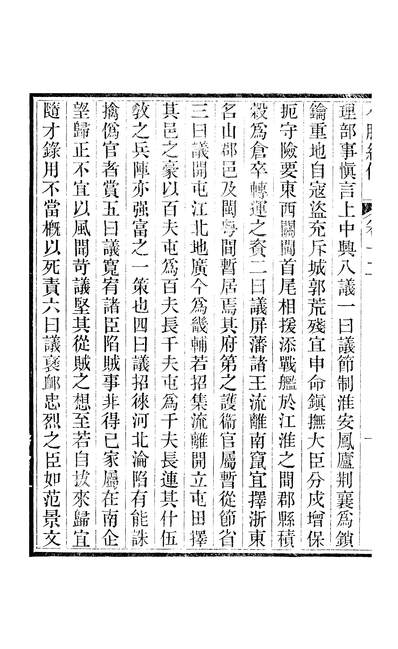 小腆紀傳 卷十二
理部事愼言上中興八議一曰議節制淮安鳳廬荆襄爲鎖
鑰重地自寇盜充斥城郭荒殘宜申命鎭撫大臣分戍增保
扼守險要東西關閫首尾相援添戰艦於江淮之間郡縣積
穀爲倉卒轉運之資二曰議屏藩諸王流離南竄宜擇浙東
名山郡邑及閩粵間暫居焉其府第之護衞官屬暫從節省
三曰議開屯江北地廣今爲畿輔若招集流離開立屯田擇
其邑之豪以百夫屯爲百夫長千夫屯爲千夫長連其什伍
敎之兵陣亦强富之一策也四曰議招徠河北淪陷有能誅
擒僞官者賞五曰議寬宥諸臣陷賊事非得已家屬在南企
望歸正不宜以風聞苛議堅其從賊之想至若自拔來歸宜
隨才錄用不當槪以死責六曰議褒卹忠烈之臣如范景文